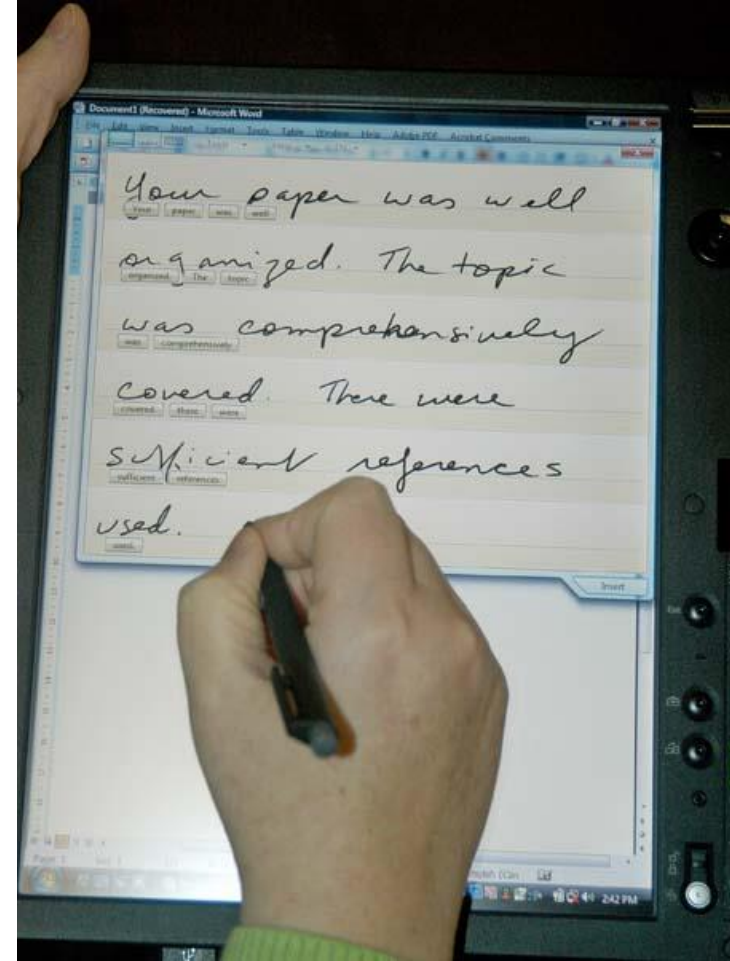 Document1 (Recovered) - Microsoft Word
File Edit View Insert Format Tools Table Window Help Adobe PDF Acrobat Comments
Your paper was well
Your paper was well
organized. The topic
organized. The topic
was comprehensively
was comprehensively
covered. There were
covered. there were
sufficient references
sufficient references
used.
used.
Insert
Page 1
2:42 PM